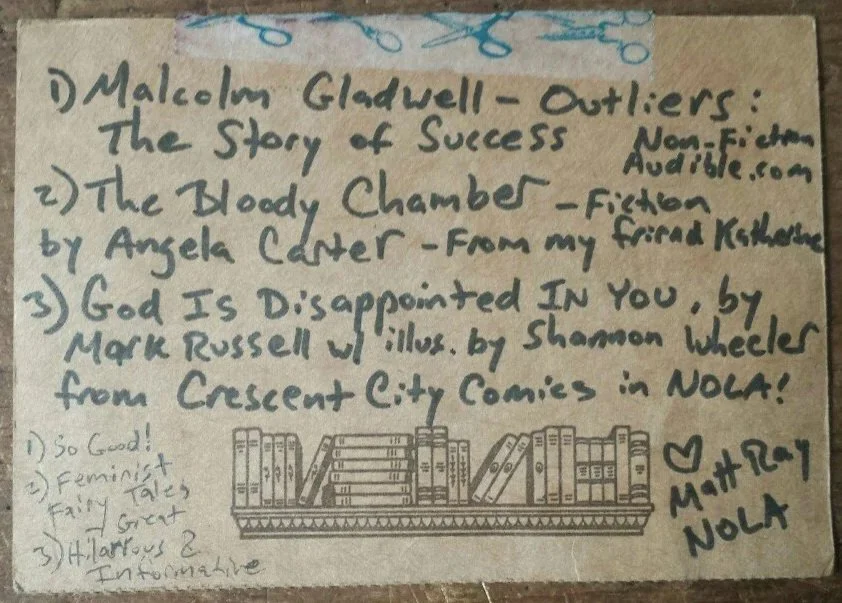 1) Malcolm Gladwell - Outliers:
The Story of Success
Non-Fiction
Audible.com
2) The Bloody Chamber - Fiction
by Angela Carter - From my friend Katherine
3) God Is Disappointed In You, by
Mark Russell w/ illus. by Shannon Wheeler
from Crescent City Comics in NOLA!
1) So Good!
2) Feminist
Fairy Tales
- Great
3) Hilarious &
Informative
♡
Matt Ray
NOLA